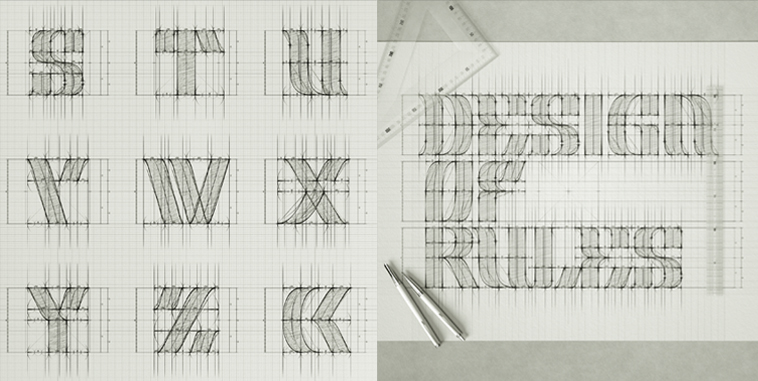 S T U
V W X
Y Z
DESIGN
OF
RULES